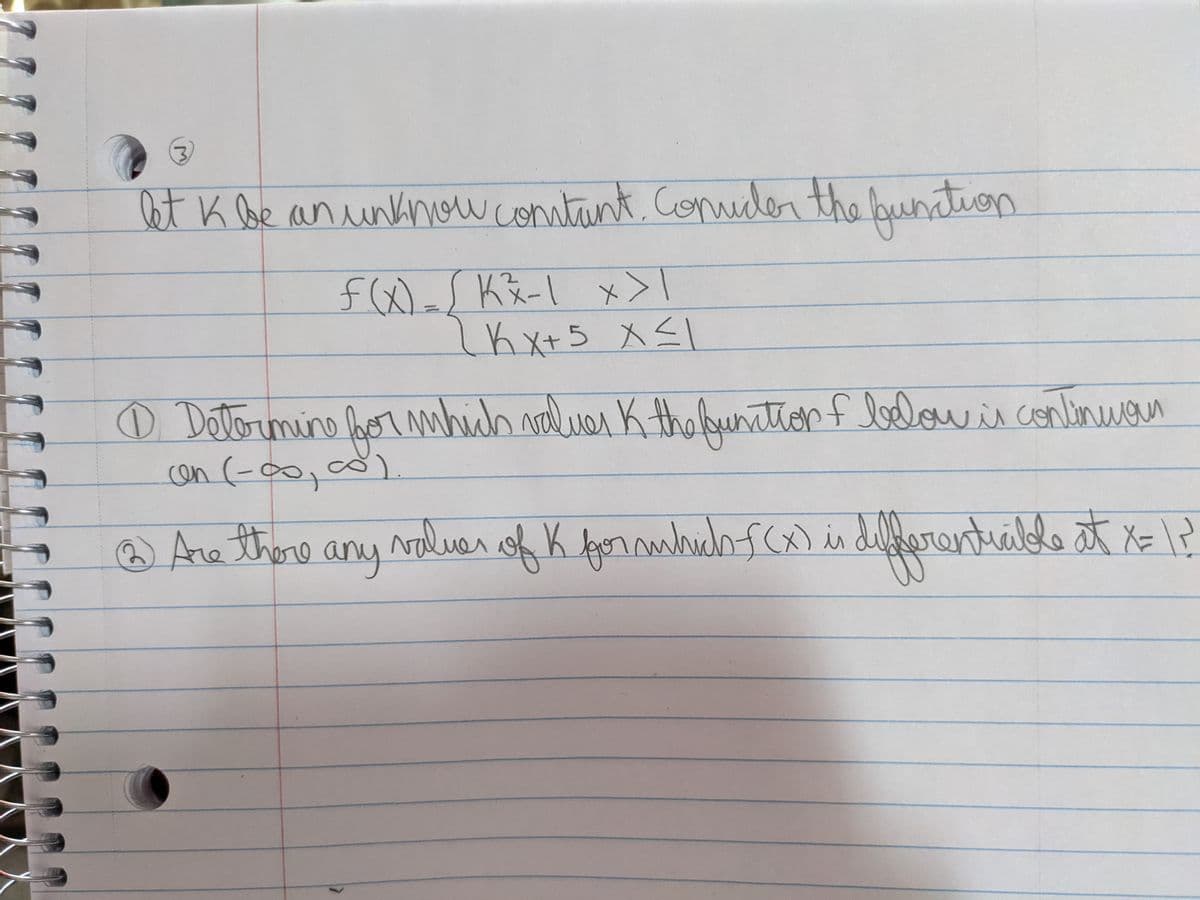 3
let K be an unknow constant. Consider the function
f(x) = { K²x-1 x>1
Kx+5 x≤1
① Determine for which values K the function f below is continuous
on (-∞, ∞).
② Are there any values of K for which f(x) is differentiable at x=1?